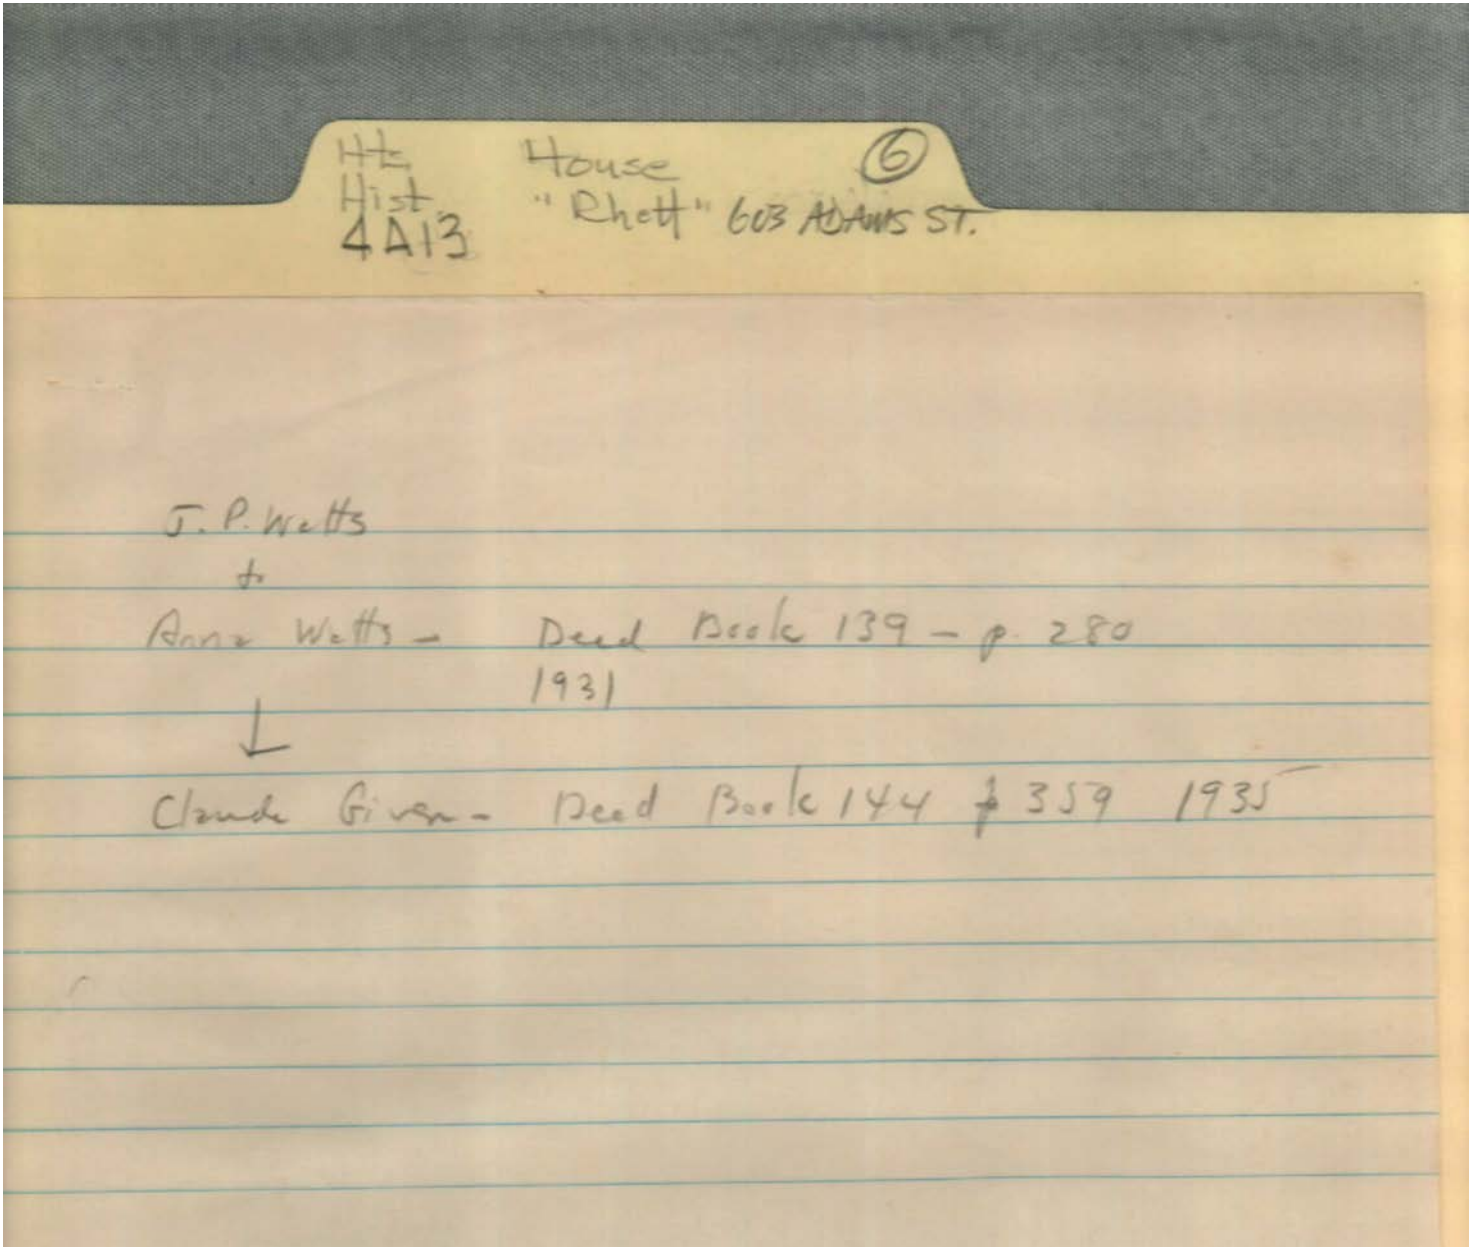 Hts House ⑥
Hist. "Rhett" 603 ADAMS ST.
4A13
J. P. Watts
to
Anna Watts - Deed Book 139 - p. 280
1931
↓
Claude Given - Deed Book 144 p 359 1935